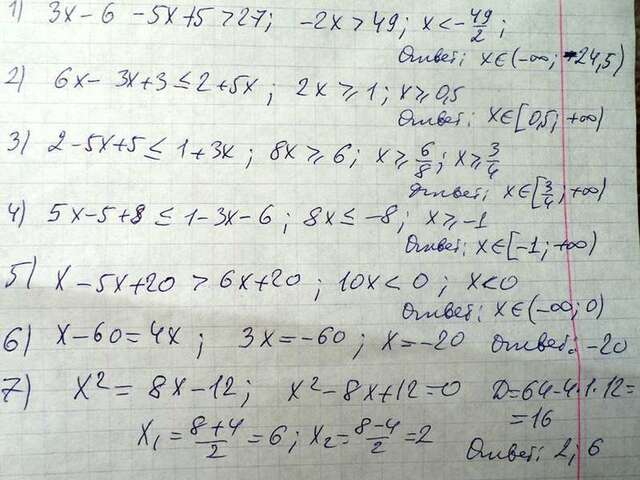 1) 3x-6 -5x+5>27; -2x>49; x<-49/2;
Ответ: x∈(-∞; -24,5)
2) 6x-3x+3≤2+5x; 2x≥1; x≥0,5
Ответ: x∈[0,5; +∞)
3) 2-5x+5≤1+3x; 8x≥6; x≥6/8; x≥3/4
Ответ: x∈[3/4; +∞)
4) 5x-5+8≤1-3x-6; 8x≤-8; x≥-1
Ответ: x∈[-1; +∞)
5) x-5x+20>6x+20; 10x<0; x<0
Ответ: x∈(-∞; 0)
6) x-60=4x; 3x=-60; x=-20 Ответ: -20
7) x²=8x-12; x²-8x+12=0 D=64-4·1·12=
=16
x₁=(8+4)/2=6; x₂=(8-4)/2=2
Ответ: 2; 6